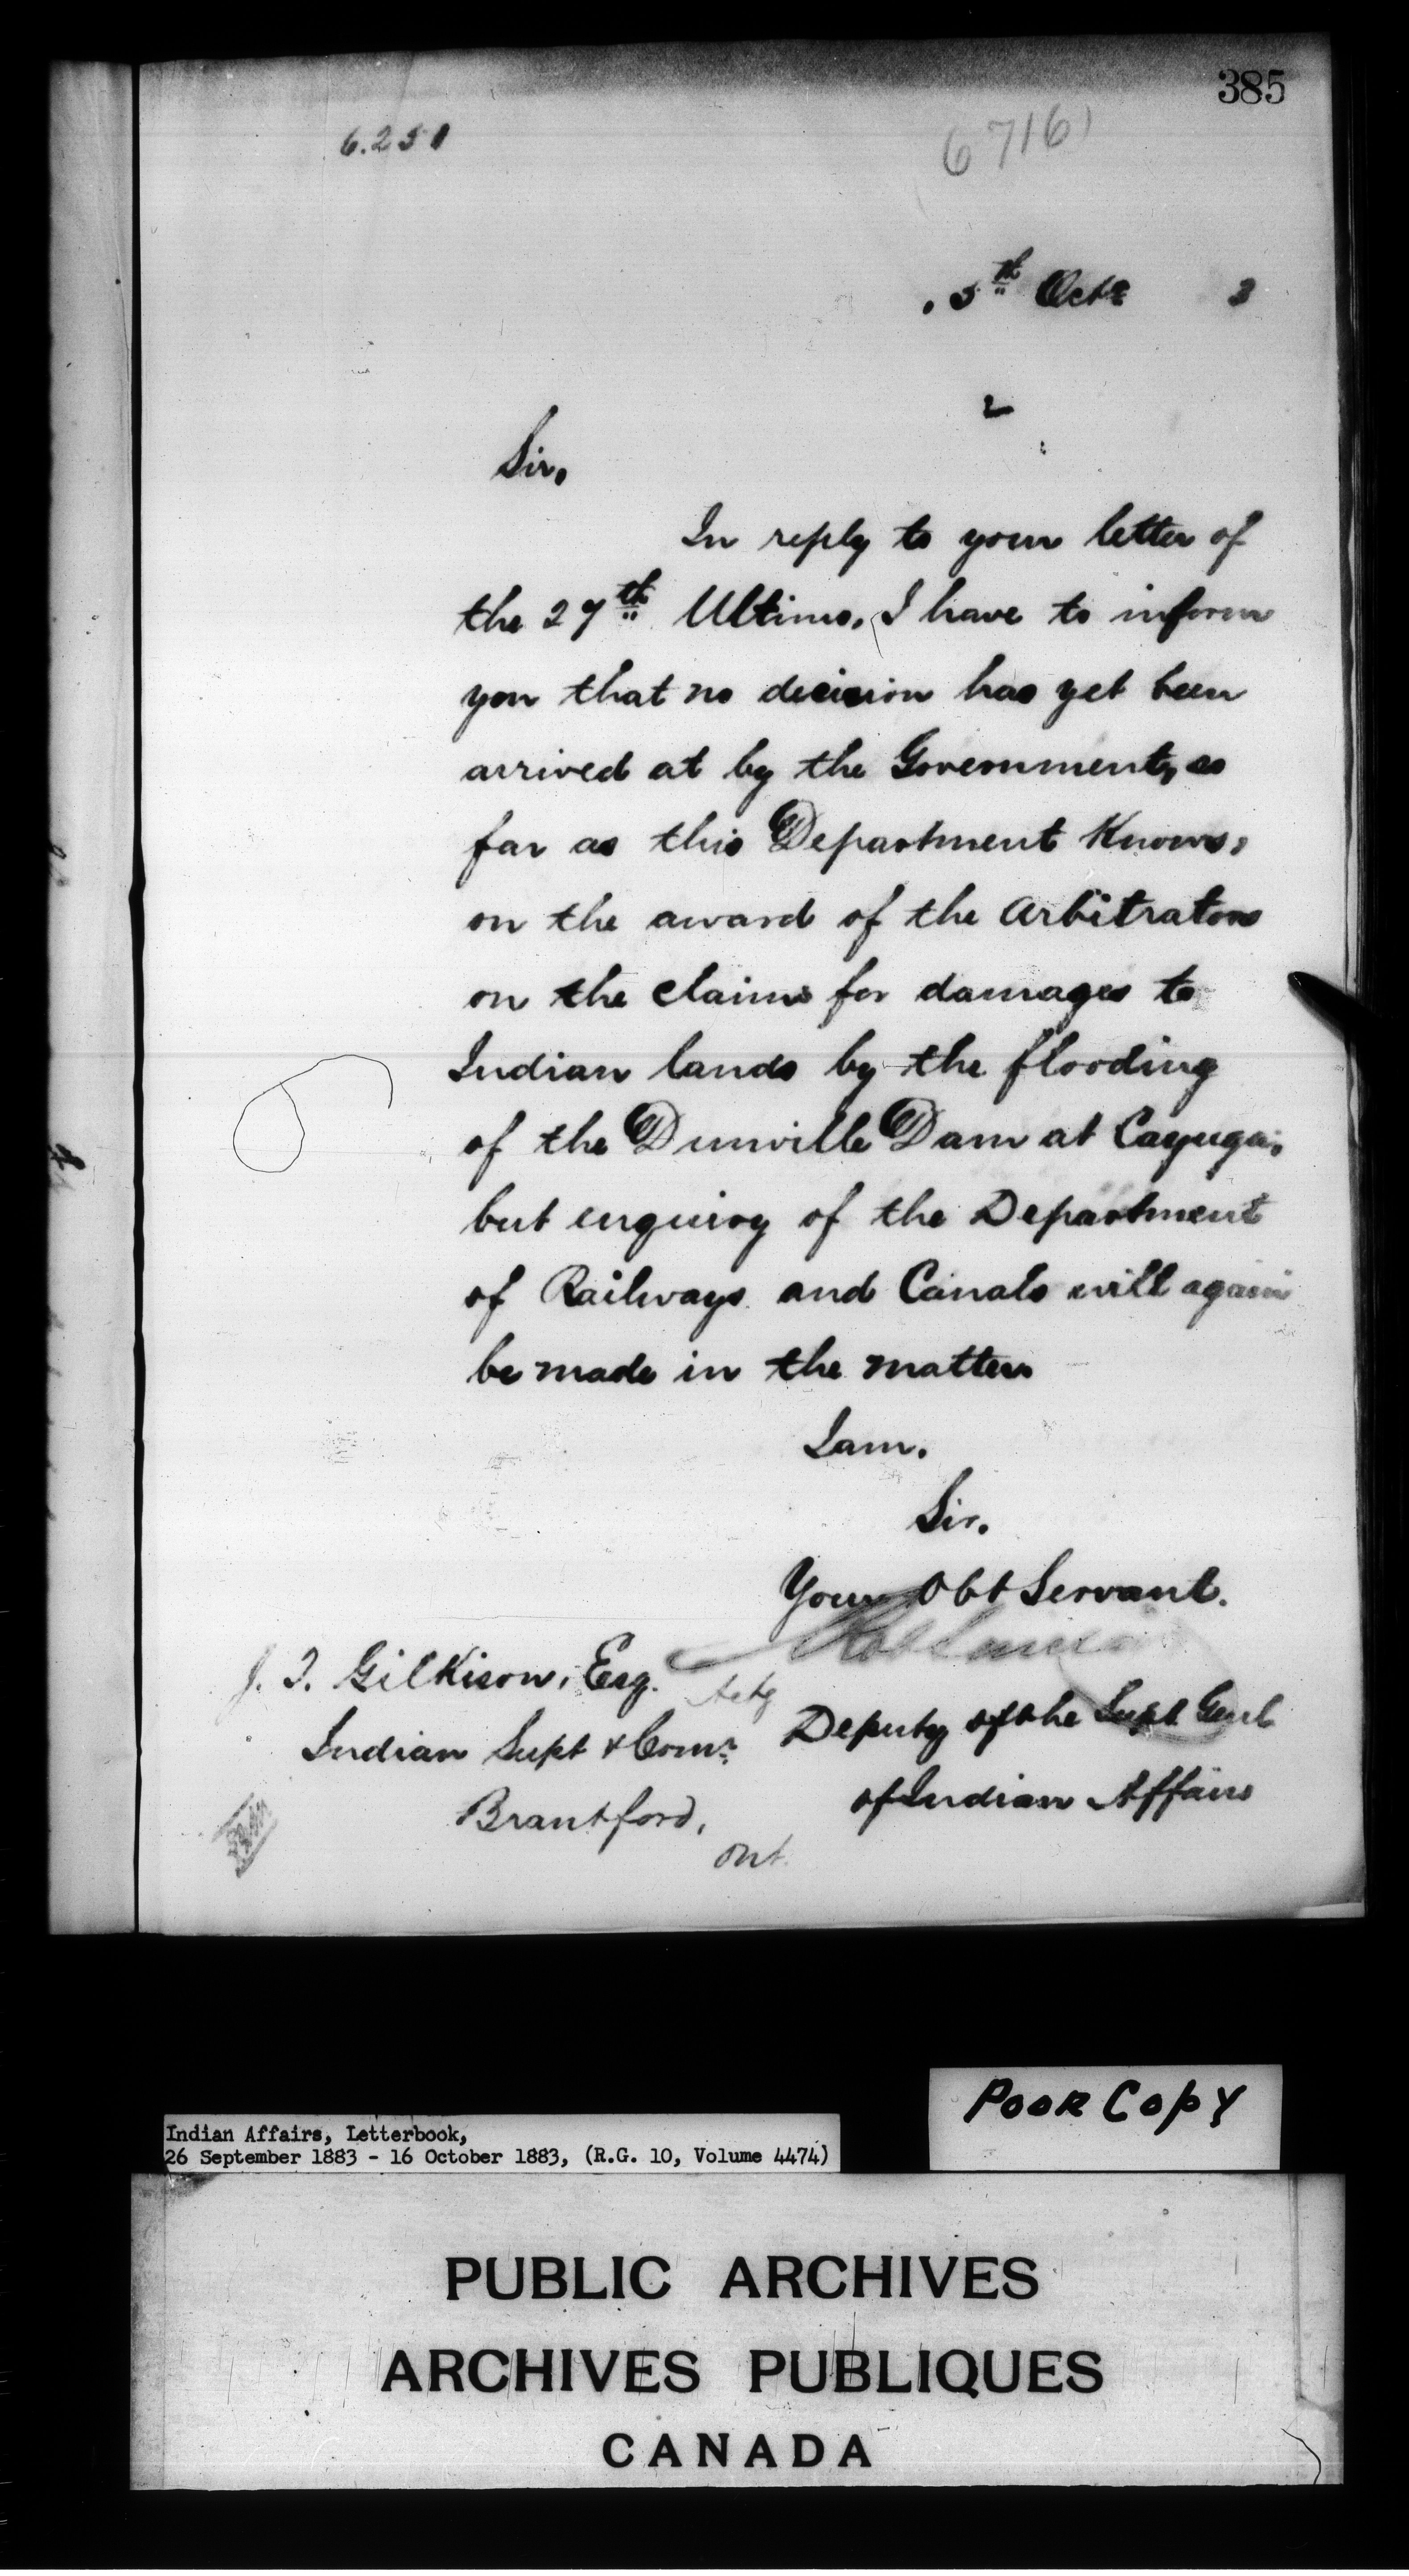 385
6.251
6716
5th Octr 3
Sir,
In reply to your letter of
the 27th Ultimo, I have to inform
you that no decision has yet been
arrived at by the Government, so
far as this Department Knows,
on the award of the Arbitrators
on the claims for damages to
Indian lands by the flooding
of the Dunville Dam at Cayuga,
but enquiry of the Department
of Railways and Canals will again
be made in the matter
I am,
Sir,
Your Obt Servant.
J. T. Gilkison, Esq.
Indian Supt & Comr
Brantford,
Ont.
Actg
Deputy of the Supt Genl
of Indian Affairs
Poor Copy
Indian Affairs, Letterbook,
26 September 1883 - 16 October 1883, (R.G. 10, Volume 4474)
PUBLIC ARCHIVES
ARCHIVES PUBLIQUES
CANADA